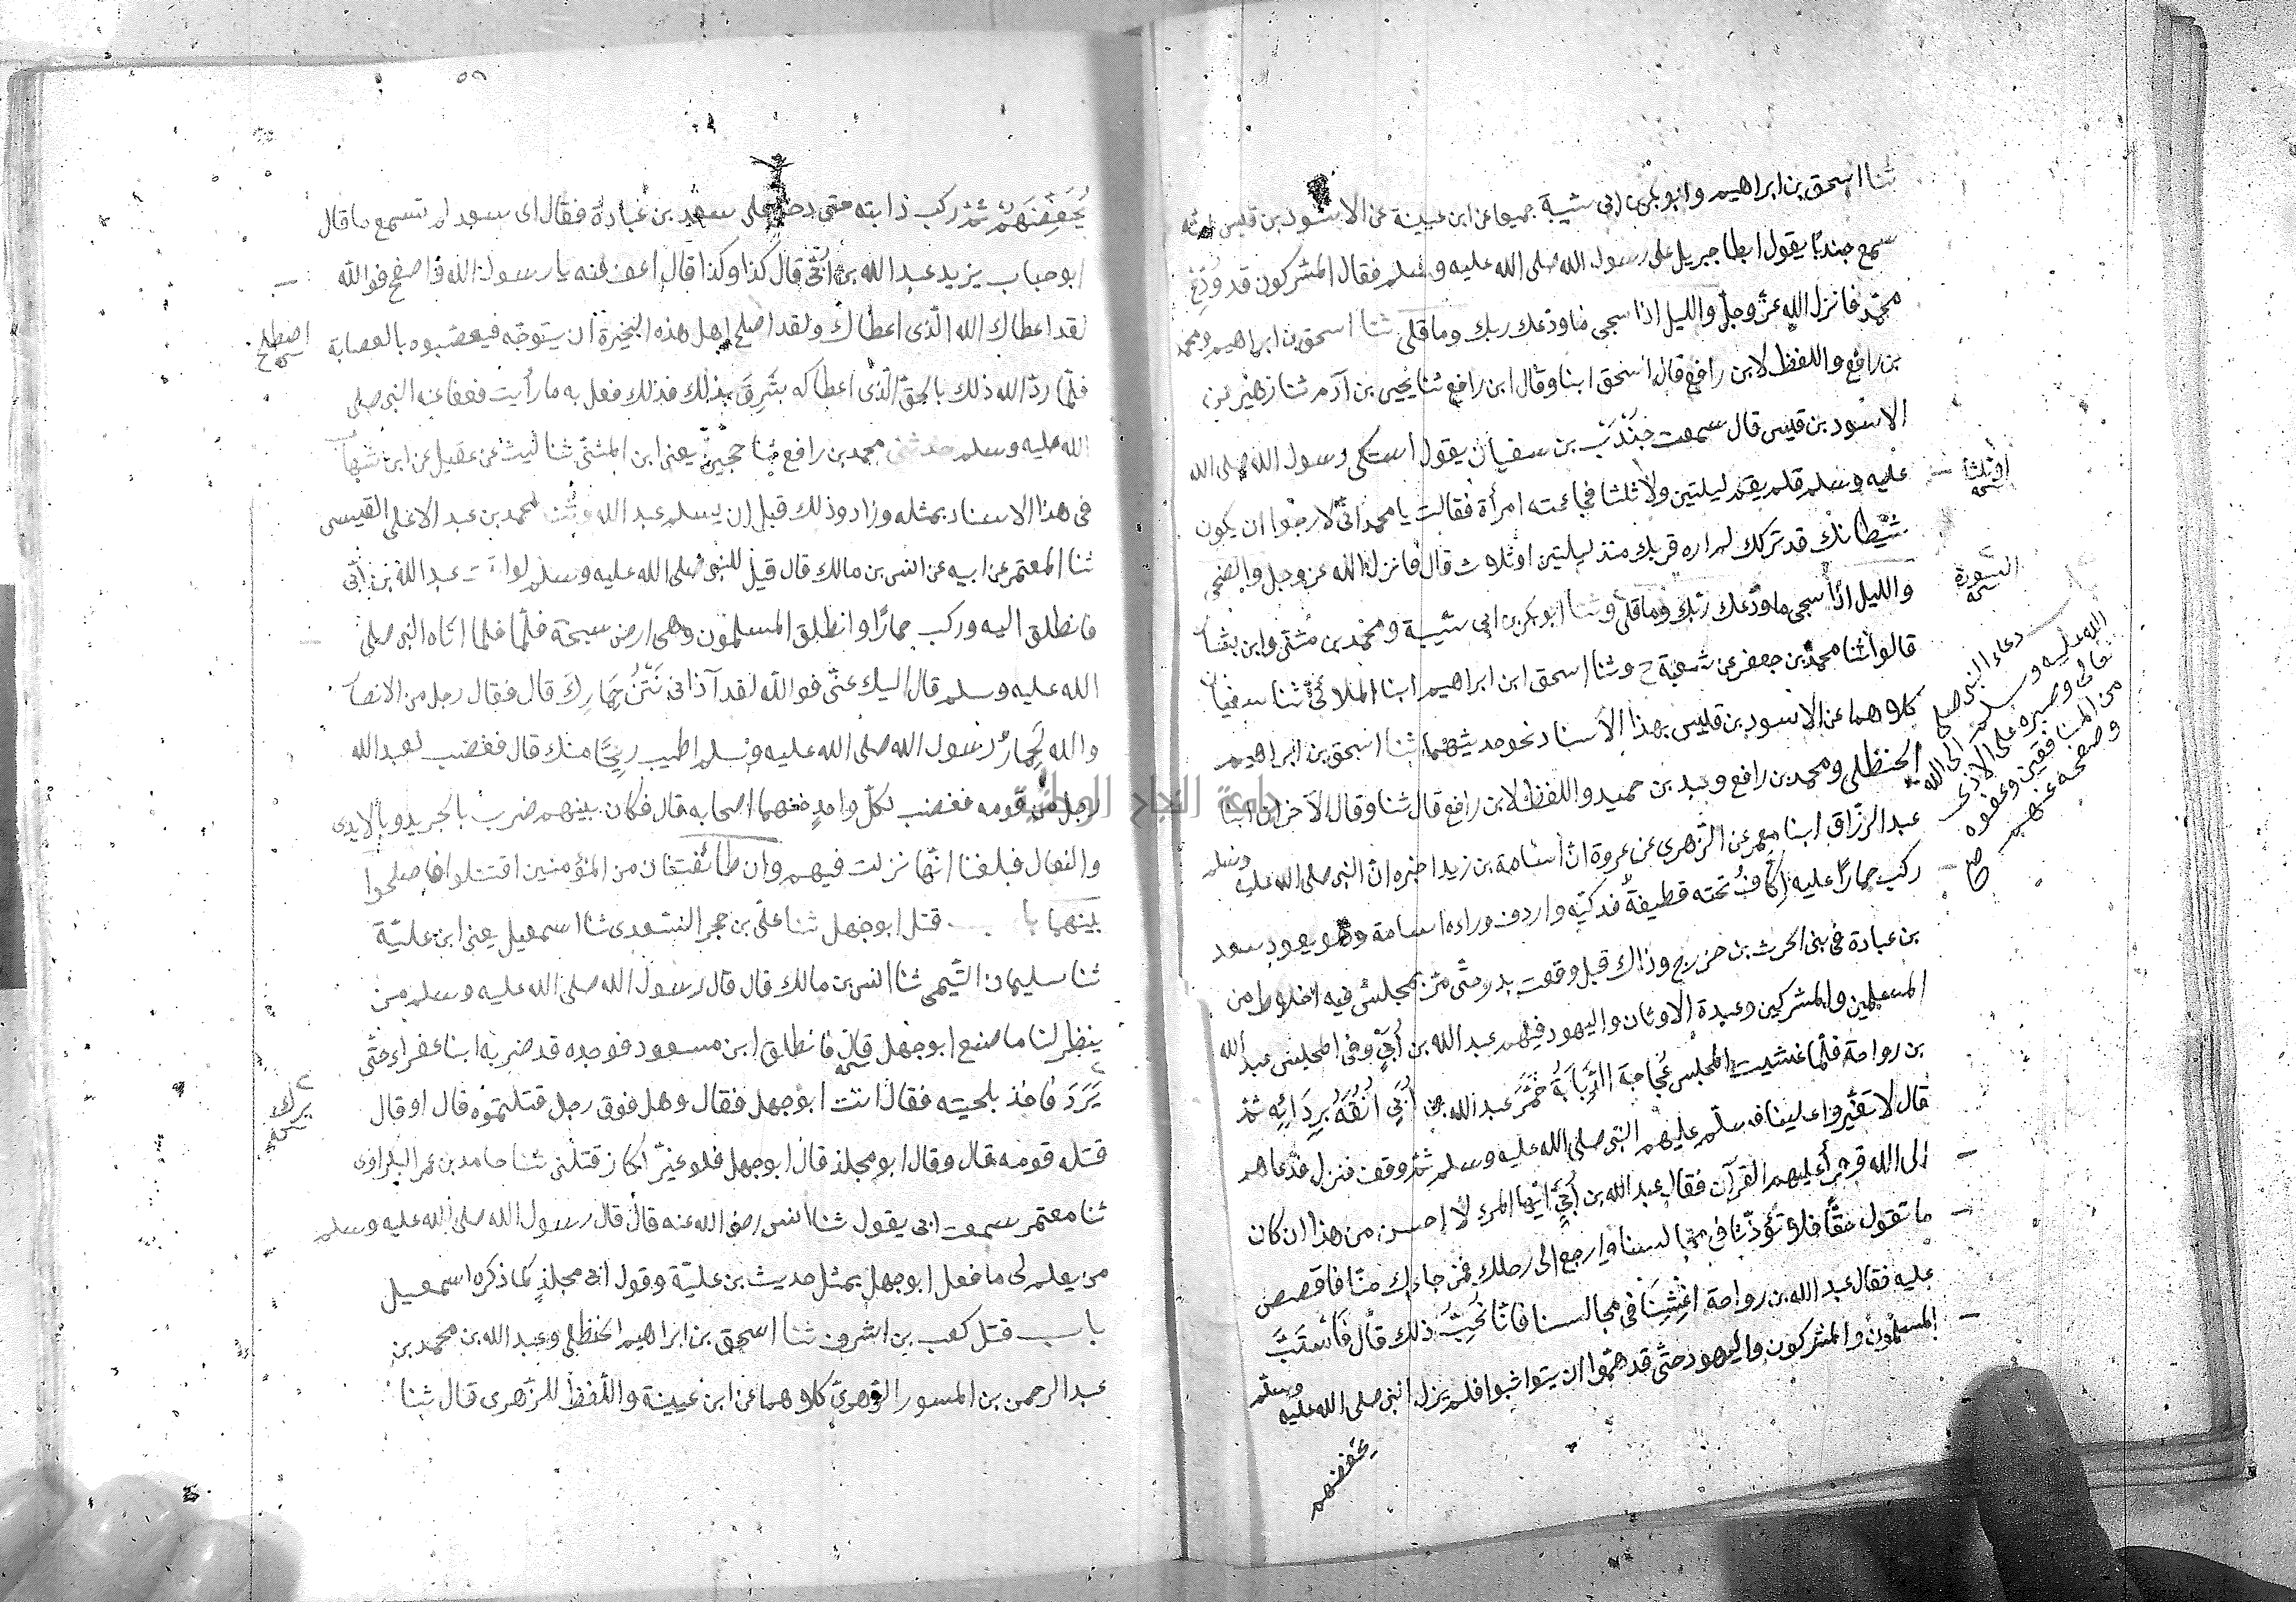 ثنا اسحق بن ابراهيم وابو بكر بن ابى شيبة جميعا عن ابن عيينة عن الاسود بن قيس انه
سمع جندبا يقول ابطا جبريل على رسول الله صلى الله عليه وسلم فقال المشركون قد ودع
محمد فانزل الله عز وجل والليل اذا سجى ما ودعك ربك وما قلى ثنا اسحق بن ابراهيم ومحمد
بن رافع واللفظ لابن رافع قال اسحق ابنا وقال ابن رافع ثنا يحيى بن آدم ثنا زهير عن
الاسود بن قيس قال سمعت جندب بن سفيان يقول اشتكى رسول الله صلى الله
عليه وسلم فلم يقم ليلتين ولا ثلثا فجاءته امرأة فقالت يا محمد انى لارجوا ان يكون
شيطانك قد تركك لم اره قربك منذ ليلتين او ثلاث قال فانزل الله عز وجل والضحى
والليل اذا سجى ما ودعك ربك وما قلى وثنا ابو بكر بن ابى شيبة ومحمد بن مثنى وابن بشار
قالوا ثنا محمد بن جعفر عن شعبة ح وثنا اسحق ابن ابراهيم ابنا الملائى ثنا سفيان
كلاهما عن الاسود بن قليس بهذا الاسناد نحو حديثهما ثنا اسحق بن ابراهيم
الحنظلى ومحمد بن رافع وعبد بن حميد واللفظ لابن رافع قال ثنا وقال الآخران ابنا
عبد الرزاق ابنا معمر عن الزهرى عن عروة ان اسامة بن زيد اخبره ان النبى صلى الله عليه وسلم
ركب حمارا عليه اكاف تحته قطيفة فدكية واردف وراءه اسامة وهو يعود سعد
بن عبادة فى بنى الحرث بن خزرج وذاك قبل وقعت بدر حتى مر بمجلس فيه اخلاط من
المسلمين والمشركين وعبدة الاوثان واليهود فيهم عبد الله بن أبى وفى المجلس عبد الله
بن رواحة فلما غشيت المجلس عجاجة الدابة خمر عبد الله بن أبى انفه بردائه ثم
قال لا تغبروا علينا فسلم عليهم النبى صلى الله عليه وسلم ثم وقف فنزل فدعاهم
الى الله وقرأ عليهم القرآن فقال عبد الله بن أبى ايها المرء لا احسن من هذا ان كان
ما تقول حقا فلا تؤذنا فى مجالسنا وارجع الى رحلك فمن جاءك منا فاقصص
عليه فقال عبد الله بن رواحة اغشنا فى مجالسنا فانا نحب ذلك قال فاستب
المسلمون والمشركون واليهود حتى قد هموا ان يتواثبوا فلم يزل النبى صلى الله عليه وسلم
يخفضهم
او ثلثا
السورة
دعاء النبى صلى
الله عليه وسلم الى الله
تعالى وصبره على الاذى
من المنافقين وعفوه
وصفحه عنهم
صح
٥٩
يخفضهم ثم ركب دابته حتى دخل على سعد بن عبادة فقال اى سعد لم تسمع ما قال
ابو حباب يريد عبد الله بن أبى قال كذا وكذا قال اعف عنه يا رسول الله واصفح فوالله
لقد اعطاك الله الذى اعطاك ولقد اصلح اهل هذه البحيرة ان يتوجه فيعصبوه بالعصابة
فلما رد الله ذلك بالحق الذى اعطاكه شرق بذلك فذلك فعل به ما رأيت فعفا عنه النبى صلى
الله عليه وسلم حدثنى محمد بن رافع ثنا حجين يعنى ابن المثنى ثنا ليث عن عقيل عن ابن شهاب
فى هذا الاسناد بمثله وزاد وذلك قبل ان يسلم عبد الله وثنا محمد بن عبد الاعلى القيسى
ثنا المعتمر عن ابيه عن انس بن مالك قال قيل للنبى صلى الله عليه وسلم لو اتيت عبد الله بن أبى
فانطلق اليه وركب حمارا وانطلق المسلمون وهى ارض سبخة فلما فلما اتاه النبى صلى
الله عليه وسلم قال اليك عنى فوالله لقد آذانى نتن حمارك قال فقال رجل من الانصار
والله لحمار رسول الله صلى الله عليه وسلم اطيب ريحا منك قال فغضب لعبد الله
رجل من قومه فغضب لكل واحد منهما اصحابه قال فكان بينهم ضرب بالجريد وبالايدى
والنعال فبلغنا انها نزلت فيهم وان طائفتان من المؤمنين اقتتلوا فاصلحوا
بينهما با قتل ابو جهل ثنا على بن حجر السعدى ثنا اسمعيل يعنى ابن علية
ثنا سليمان التيمى ثنا انس بن مالك قال قال رسول الله صلى الله عليه وسلم من
ينظر لنا ما صنع ابو جهل قال فانطلق ابن مسعود فوجده قد ضربه ابنا عفراء حتى
برد فاخذ بلحيته فقال انت ابو جهل فقال وهل فوق رجل قتلتموه قال او قال
قتله قومه قال وقال ابو مجلز قال ابو جهل فلو غير اكار قتلنى ثنا حامد بن عمر البكراوى
ثنا معتمر سمعت ابى يقول ثنا انس رضى الله عنه قال قال رسول الله صلى الله عليه وسلم
من يعلم لى ما فعل ابو جهل بمثل حديث بن علية وقول ابى مجلز كما ذكره اسمعيل
باب قتل كعب بن اشرف ثنا اسحق بن ابراهيم الحنظلى وعبد الله بن محمد بن
عبد الرحمن بن المسور الزهرى كلاهما عن ابن عيينة واللفظ للزهرى قال ثنا
اصطلح
برك
جامعة النجاح الوطنية